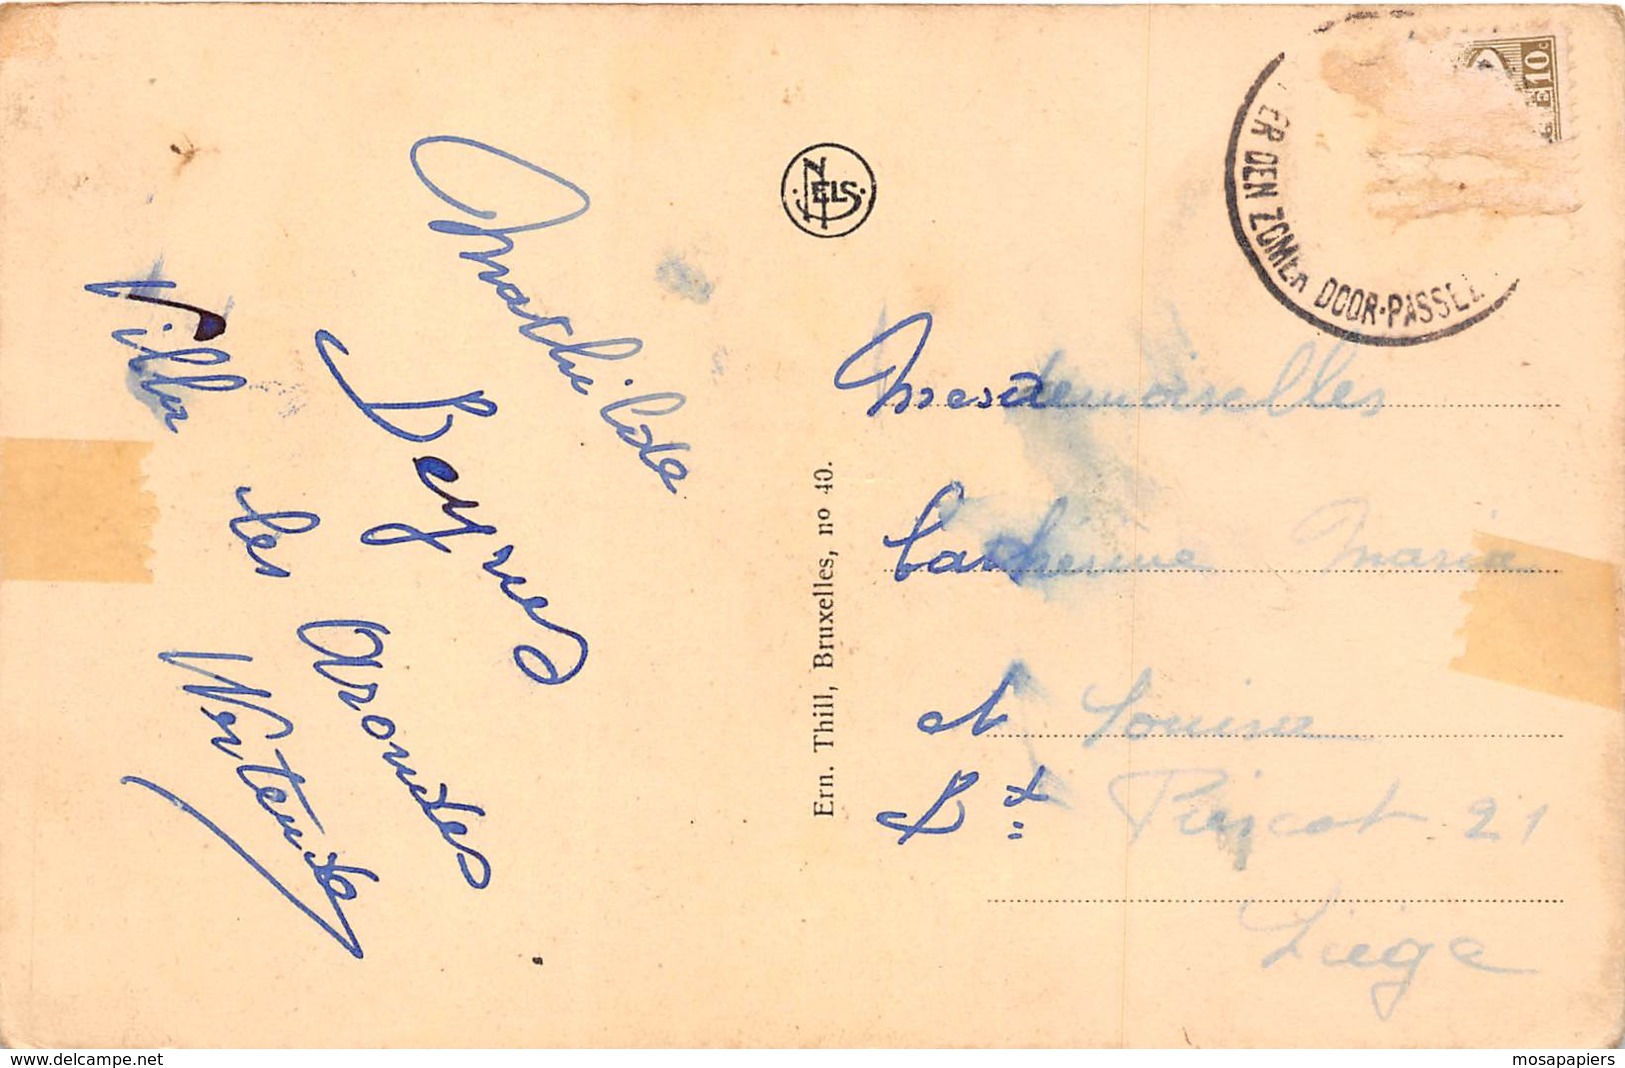 Mathilde
Deyres
Villa les Aroudes
NELS
Ern. Thill, Bruxelles, no 40.
E 10 c
ER DEN ZOMER DOOR-PASSEZ
Mesdemoiselles
Catherine Maria
et Louisa
21
Liège
www.delcampe.net
mosapapiers